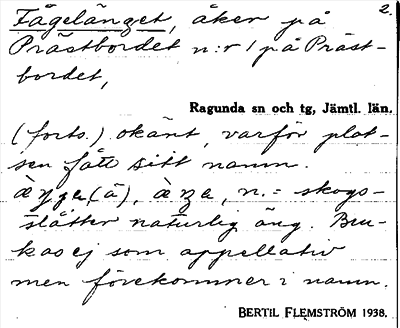 2.
Fågelänget, åker på
Prästbordet n:r 1 på Präst-
bordet,
Ragunda sn och tg, Jämtl. län.
(forts.) okänt, varför plat-
sen fått sitt namn.
(ä), n. = skogs-
slåtter naturlig äng. Bru-
kas ej som appellativ
men förekommer i namn.
BERTIL FLEMSTRÖM 1938.